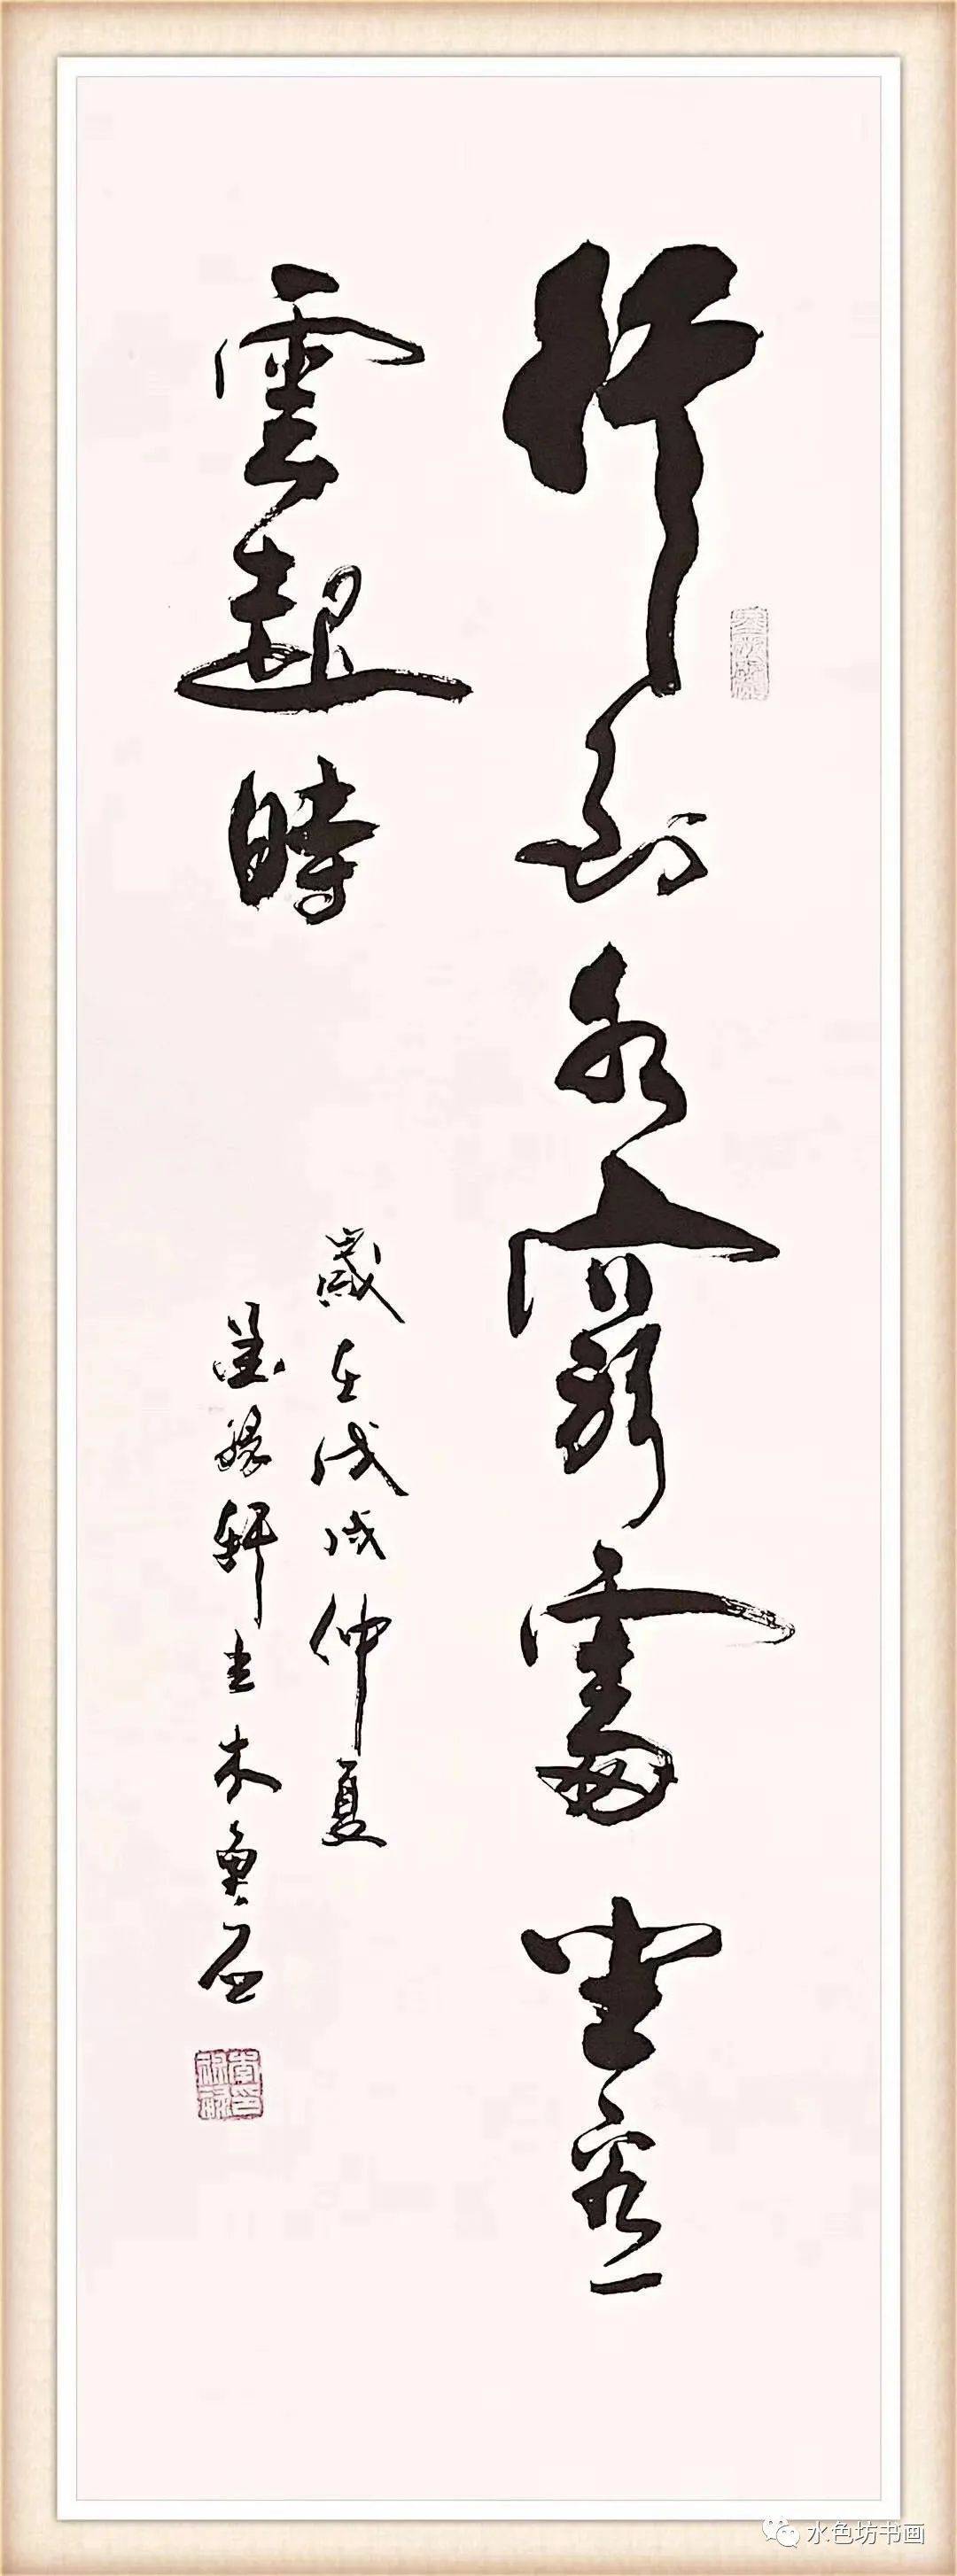 行到水窮處坐看
雲起時
歲在戊戌仲夏
墨緣軒主木魚石
水色坊书画